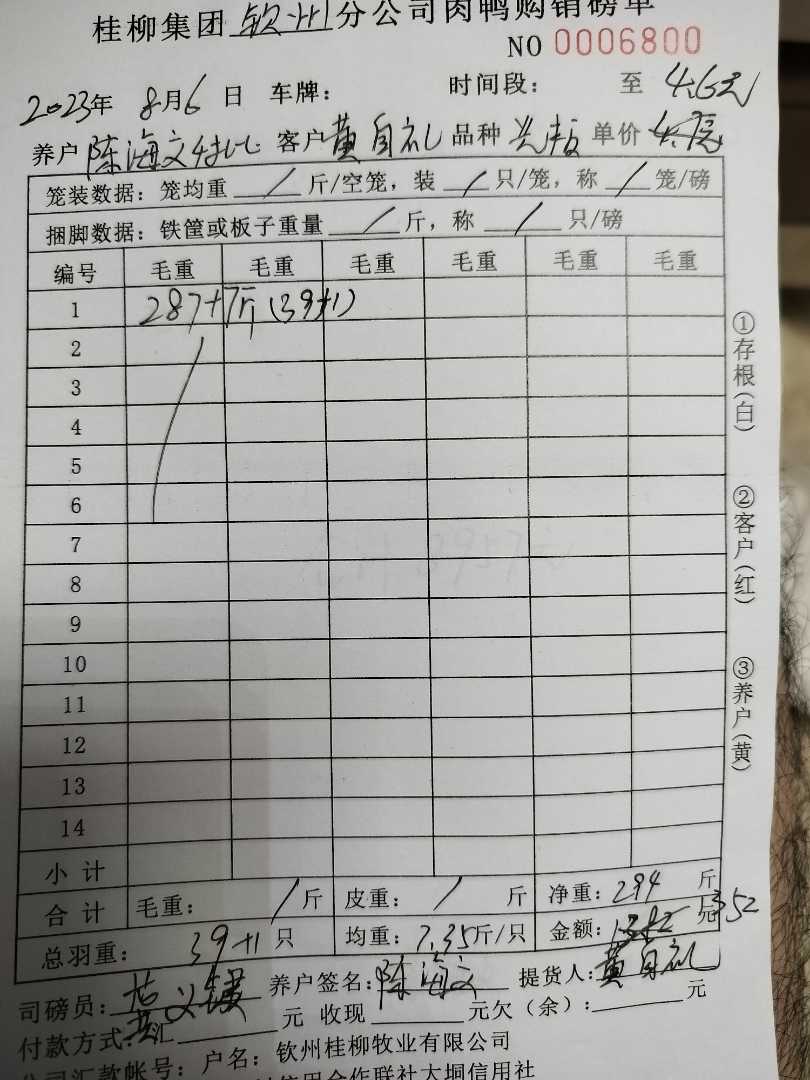 桂柳集团 钦州 分公司肉鸭购销磅单
NO 0006800
2023年 8月6日 车牌: 时间段: 至 4.6元
养户 陈海文 客户 黄自礼 品种 单价
笼装数据:笼均重 / 斤/空笼,装 / 只/笼,称 / 笼/磅
捆脚数据:铁筐或板子重量 / 斤,称 / 只/磅
编号 毛重 毛重 毛重 毛重 毛重 毛重
1 287+7斤(39+1)
2
3
4
5
6
7
8
9
10
11
12
13
14
小计
合计 毛重: / 斤 皮重: / 斤 净重: 294 斤
总羽重: 39+1 只 均重: 7.35 斤/只 金额: 元
司磅员: 养户签名: 陈海文 提货人: 黄自礼
付款方式: 汇 元 收现 元欠(余): 元
公司汇款帐号: 户名:钦州桂柳牧业有限公司
信用合作联社大垌信用社
①存根(白)
②客户(红)
③养户(黄)